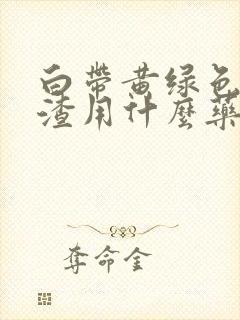 白带黄绿色
渣用什麼藥
夺命金